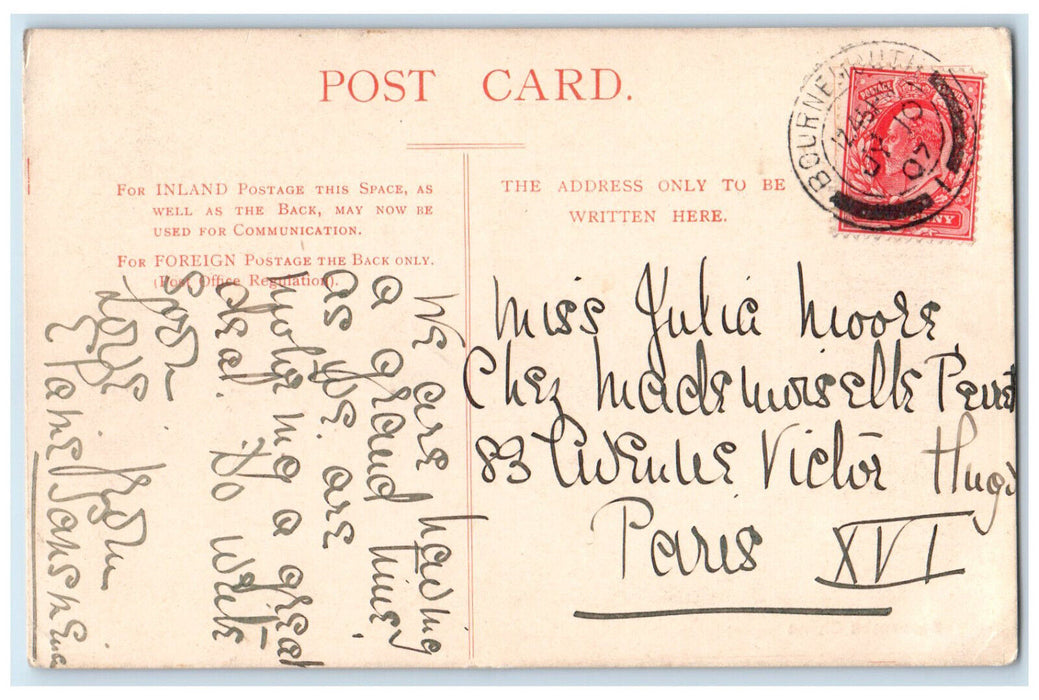 POST CARD.
FOR INLAND POSTAGE THIS SPACE, AS
WELL AS THE BACK, MAY NOW BE
USED FOR COMMUNICATION.
FOR FOREIGN POSTAGE THE BACK ONLY.
(Post Office Regulation).
THE ADDRESS ONLY TO BE
WRITTEN HERE.
BOURNEMOUTH
1
12.45 PM
JY 10
07
POSTAGE
Miss Julia Moore
Chez Mademoiselle
83 Avenue Victor Hugo
Paris XVI
We are having
a grand time
as we are
a great
deal. Do write
soon
love from